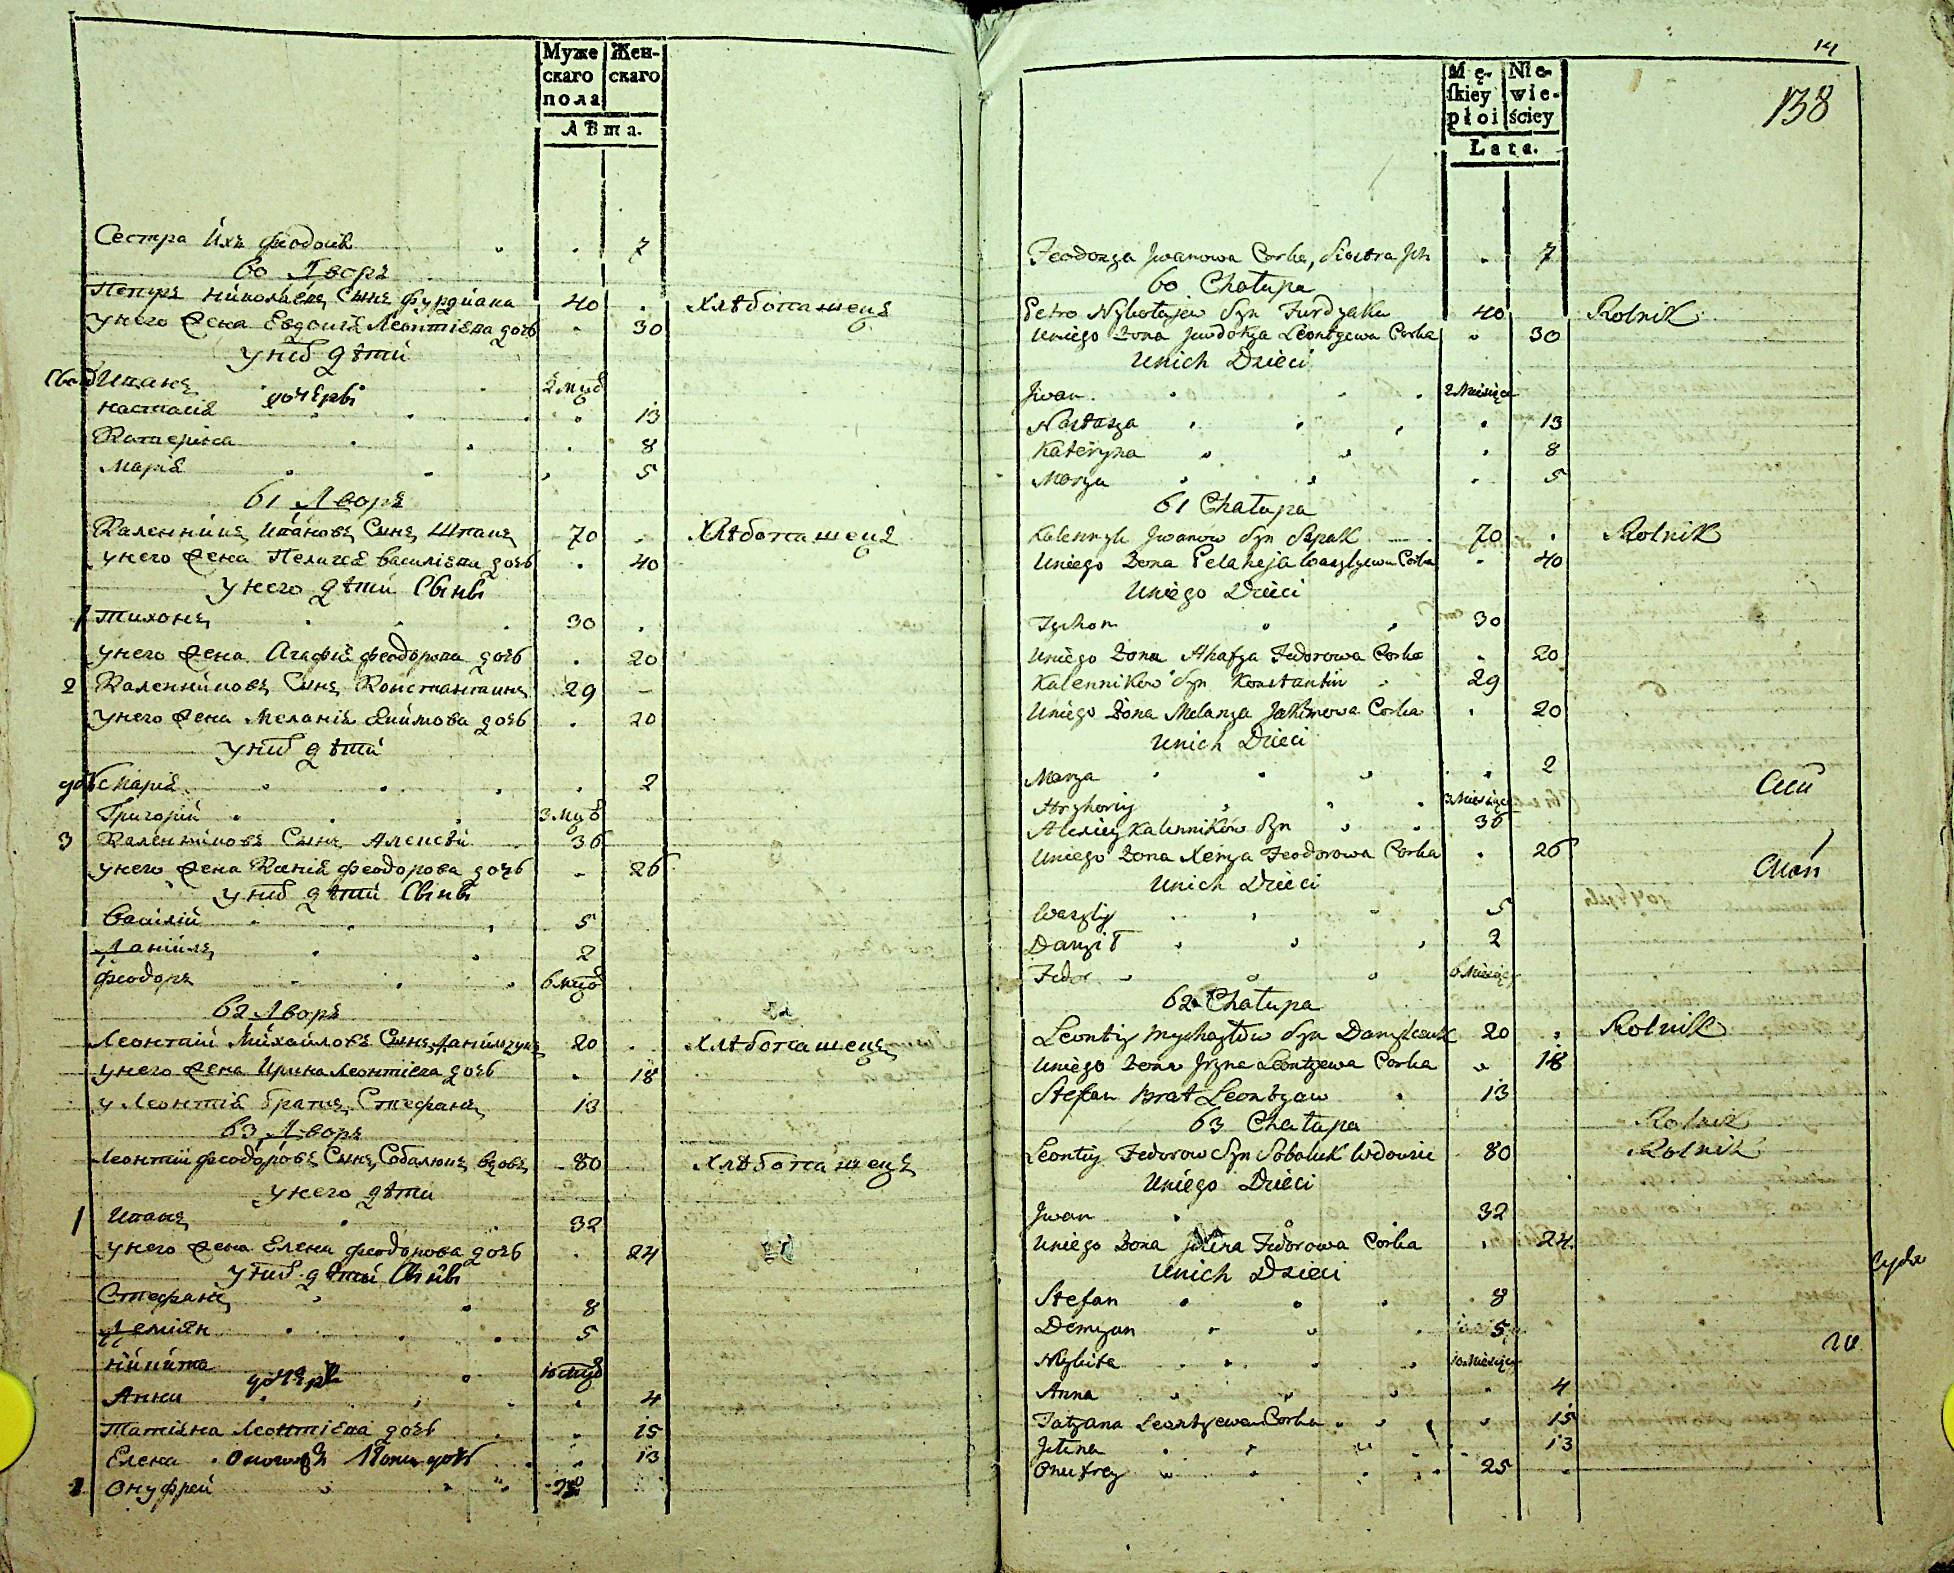 Муже Жен-
скаго скаго
пола
Лѣта.
Сестра ихъ Феодосія 7
60 Дворъ
Петръ Николаевъ Сынъ Фурдиака 40 Хлѣбопашецъ
у него Жена Евдокія Леонтіева дочь 30
у них дѣти
Сынъ Иванъ 2 мцѣ
дочери
Настасія 13
Катерина 8
Марія 5
61 Дворъ
Каленникъ Ивановъ Сынъ Шпакъ 70 Хлѣбопашецъ
у него Жена Пелагея Василіева дочь 40
у него дѣти Сыны
1 Тихонъ 30
у него Жена Агафія Феодорова дочь 20
2 Каленниковъ Сынъ Константинъ 29
у него Жена Меланія Якимова дочь 20
у них дѣти
дочь Марія 2
Григорій 3 мцѣ
3 Каленниковъ Сынъ Алексѣй 36
у него Жена Ксенія Феодорова дочь 26
у них дѣти Сыны
Василій 5
Даніилъ 2
Феодоръ 6 мцѣ
62 Дворъ
Леонтій Михайловъ Сынъ Данильчукъ 20 Хлѣбопашецъ
у него Жена Ирина Леонтіева дочь 18
у Леонтія братъ Стефанъ 13
63 Дворъ
Леонтій Феодоровъ Сынъ Соболюкъ вдовъ 80 Хлѣбопашецъ
у него дѣти
1 Иванъ 32
у него Жена Елена Феодорова дочь 24
у них дѣти Сыны
Стефанъ 8
Деміян 5
Никита 10 мцѣ
дочери
Анна 4
Татіяна Леонтіева дочь 15
Елена дочь 13
2 Онуфрей
14
138
Mę- Nie-
skiey wie-
płci ściey
Lata.
Feodozya Jwanowa Corka, Siostra Jch 7
60 Chałupa
Petro Nykołajew Syn Furdyaka 40 Rolnik
Uniego Żona Jewdokya Leontyewa Corka 30
Unich Dzieci
Jwan 2 Miesiące
Nastasya 13
Kateryna 8
Marya 5
61 Chałupa
Kalennyk Jwanow Syn Szpak 70 Rolnik
Uniego Żona Pelaheja Wasylyewa Corka 40
Uniego Dzieci
Tychon 30
Uniego Żona Ahafya Fedorowa Corka 20
Kalennikow Syn Konstantin 29
Uniego Żona Melanya Jakimowa Corka 20
Unich Dzieci
Marya 2
Hryhoriy 3 Miesiące
Alexiey Kalenników Syn 36
Uniego Żona Xenya Feodorowa Corka 26
Unich Dzieci
Wasyliy 5
Danyił 2
Fedor 6 Miesięcy
62 Chałupa
Leontiy Mychayłow Syn Danylczuk 20 Rolnik
Uniego Żona Jryna Leontyewa Corka 18
Stefan Brat Leontyaw 13
63 Chałupa
Rolnik
Leontiy Fedorow Syn Soboluk Wdowiec 80 Rolnik
Uniego Dzieci
Jwan 32
Uniego Żona Fedorowa Córka 24
Unich Dzieci
Stefan 8
Demyan 5
Nykita 10 Miesięcy
Anna 4
Tatyana Leontyewa Corka 15
Jełena 13
Onufrey 25